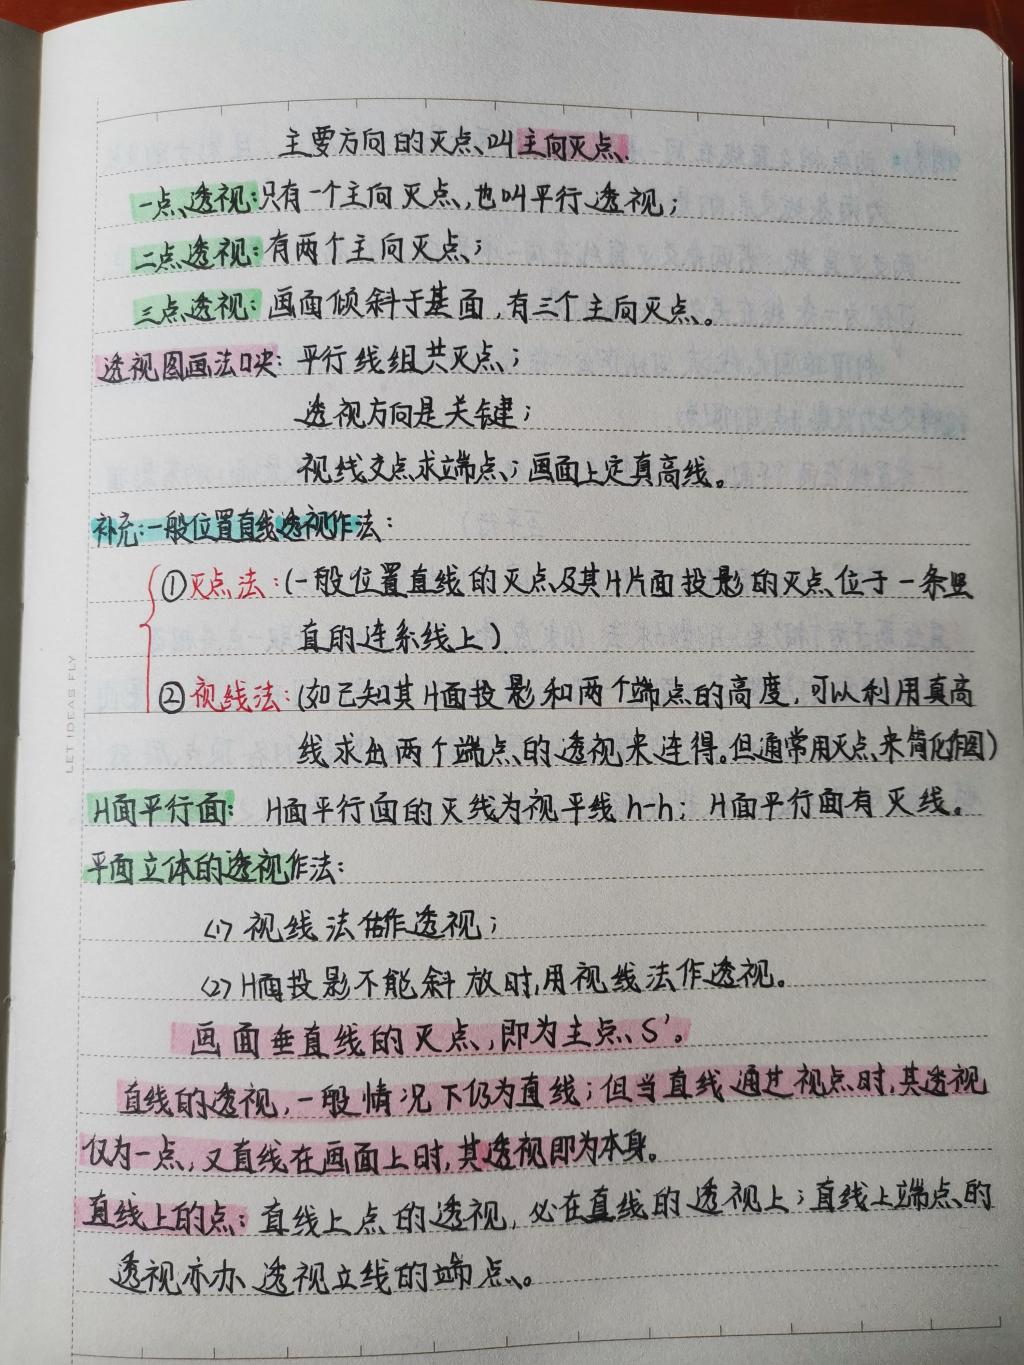 主要方向的灭点叫主向灭点.
一点透视:只有一个主向灭点,也叫平行透视;
二点透视:有两个主向灭点;
三点透视:画面倾斜于基面,有三个主向灭点。
透视图画法口诀:平行线组共灭点;
透视方向是关键;
视线交点求端点;画面上定真高线。
补充:一般位置直线透视作法:
①灭点法:(一般位置直线的灭点及其H片面投影的灭点位于一条竖
直的连系线上)
②视线法:(如已知其H面投影和两个端点的高度,可以利用真高
线求出两个端点的透视来连得。但通常用灭点来简化作图)
LET IDEAS FLY
H面平行面: H面平行面的灭线为视平线h-h; H面平行面有灭线。
平面立体的透视作法:
(1)视线法作透视;
(2)H面投影不能斜放时,用视线法作透视。
画面垂直线的灭点,即为主点S'。
直线的透视,一般情况下仍为直线;但当直线通过视点时,其透视
仅为一点,又直线在画面上时,其透视即为本身。
直线上的点:直线上点的透视,必在直线的透视上;直线上端点的
透视亦办透视立线的端点。